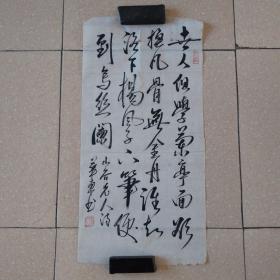 世人但學蘭亭面欲
換凡骨無金丹誰知
洛下楊風子下筆便
到烏絲闌
山谷老人詩
書